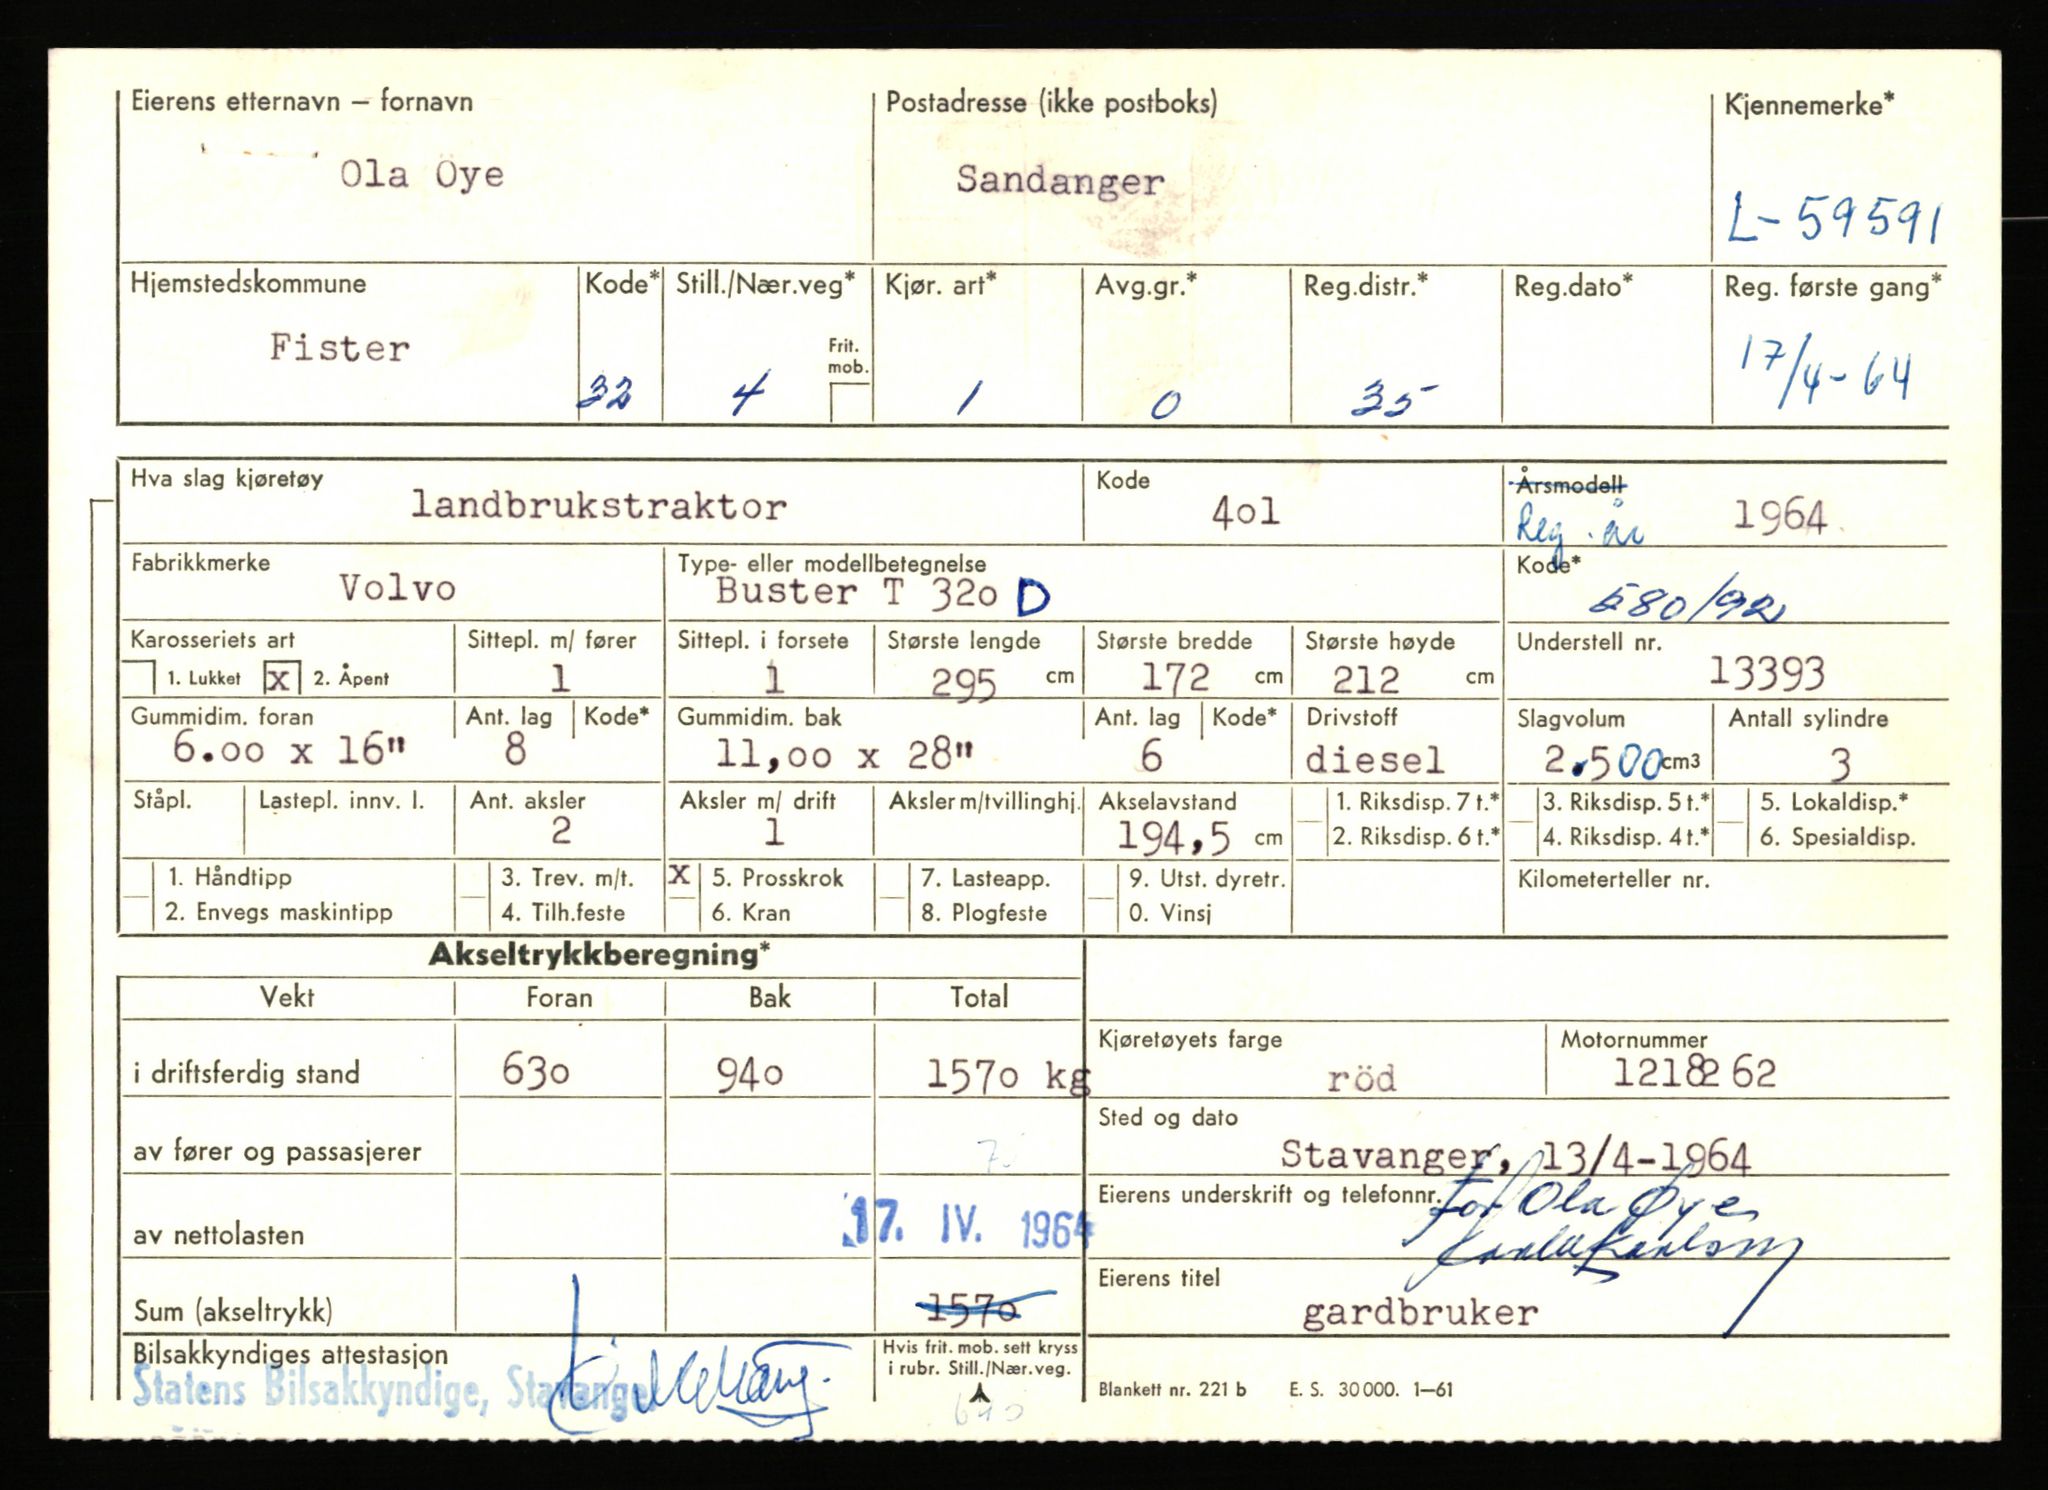 Eierens etternavn – fornavn Postadresse (ikke postboks) Kjennemerke*
Ola Öye Sandanger
L-59591
Hjemstedskommune Kode* Still./Nær.veg* Kjør. art* Avg.gr.* Reg.distr.* Reg.dato* Reg. første gang*
Fister Frit. mob. 17/4-64
32 4 1 0 35
Hva slag kjøretøy Kode Årsmodell
landbrukstraktor 4o1 Reg. år 1964
Fabrikkmerke Type- eller modellbetegnelse Kode*
Volvo Buster T 32o D 580/92
Karosseriets art Sittepl. m/ fører Sittepl. i forsete Største lengde Største bredde Største høyde Understell nr.
1. Lukket x 2. Åpent 1 1 295 cm 172 cm 212 cm 13393
Gummidim. foran Ant. lag Kode* Gummidim. bak Ant. lag Kode* Drivstoff Slagvolum Antall sylindre
6.oo x 16" 8 11,oo x 28" 6 diesel 2.500 cm3 3
Ståpl. Lastepl. innv. l. Ant. aksler Aksler m/ drift Aksler m/tvillinghj. Akselavstand 1. Riksdisp. 7 t.* 3. Riksdisp. 5 t.* 5. Lokaldisp.*
2 1 194,5 cm 2. Riksdisp. 6 t.* 4. Riksdisp. 4 t.* 6. Spesialdisp.
1. Håndtipp 3. Trev. m/t. x 5. Prosskrok 7. Lasteapp. 9. Utst. dyretr. Kilometerteller nr.
2. Envegs maskintipp 4. Tilh.feste 6. Kran 8. Plogfeste 0. Vinsj
Akseltrykkberegning*
Vekt Foran Bak Total
Kjøretøyets farge Motornummer
i driftsferdig stand 63o 94o 157o kg röd 1218262
Sted og dato
av fører og passasjerer Stavanger, 13/4-1964
Eierens underskrift og telefonnr. For Ola Øye
av nettolasten 17. IV. 1964
Eierens titel
Sum (akseltrykk) 157o gardbruker
Bilsakkyndiges attestasjon Hvis frit. mob. sett kryss
i rubr. Still./Nær.veg.
Statens Bilsakkyndige, Stavanger Blankett nr. 221 b E. S. 30 000. 1–61